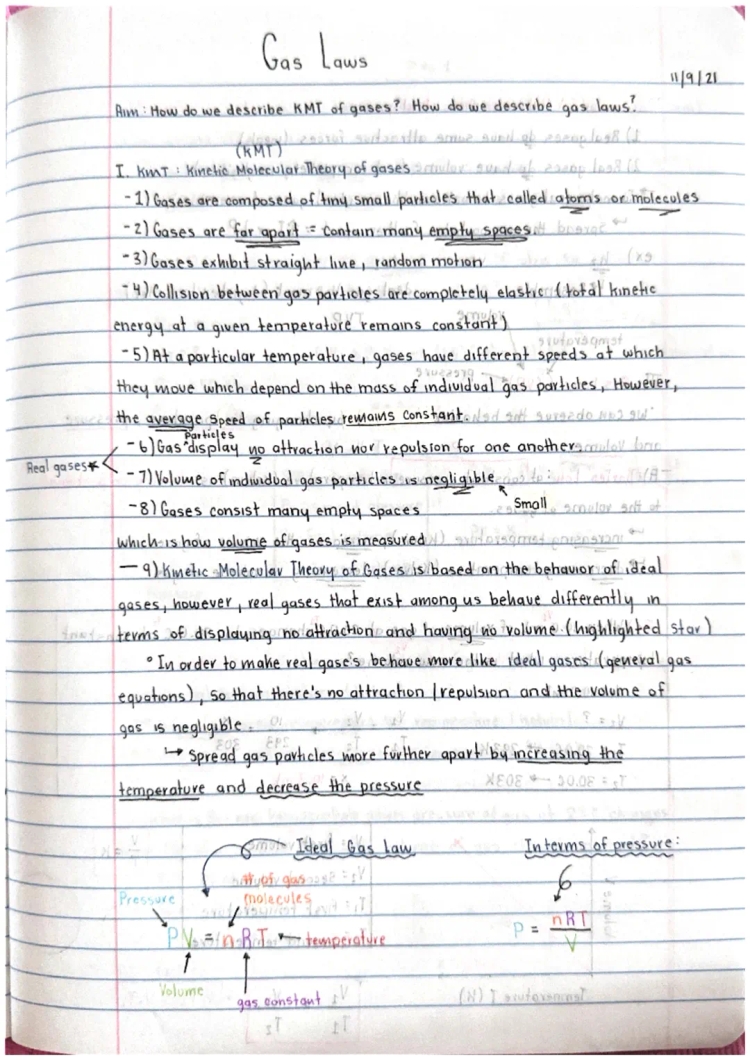 Gas Laws
11/9/21
Aim: How do we describe KMT of gases? How do we describe gas laws?
(KMT)
I. KMT: Kinetic Molecular Theory of gases
-1) Gases are composed of tiny small particles that called atoms or molecules
-2) Gases are far apart = contain many empty spaces.
-3) Gases exhibit straight line, random motion
-4) Collision between gas particles are completely elastic (total kinetic
energy at a given temperature remains constant)
-5) At a particular temperature, gases have different speeds at which
they move which depend on the mass of individual gas particles, However,
the average speed of particles remains constant.
particles
-6) Gas ^ display no attraction nor repulsion for one another
Real gases*
-7) Volume of individual gas particles is negligible
Small
-8) Gases consist many empty spaces
which is how volume of gases is measured
- 9) Kinetic Molecular Theory of Gases is based on the behavior of ideal
gases, however, real gases that exist among us behave differently in
terms of displaying no attraction and having no volume (highlighted star)
° In order to make real gase's behave more like ideal gases (general gas
equations), so that there's no attraction / repulsion and the volume of
gas is negligible.
↳ Spread gas particles more further apart by increasing the
temperature and decrease the pressure
Ideal Gas Law
In terms of pressure:
# of gas
molecules
Pressure
PV = nRT ← temperature
P = nRT / V
Volume
gas constant